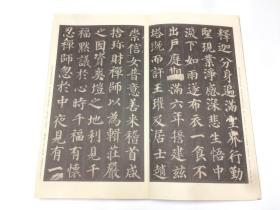 釋迦分身遍滿空界行勤
聖現業淨感深悲生悟中
淚下如雨遂布衣一食不
出戶庭期滿六年誓建茲
塔既而許王瓘及居士趙
崇信女普意善來稽首咸
捨珍財禪師以為輯莊嚴
之因資爽塏之地利見千
福默議於心時千福有懷
忍禪師忽於中夜見有一